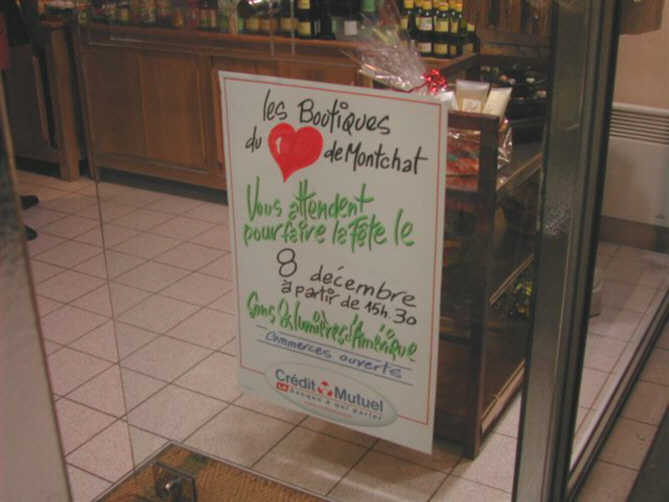 les Boutiques
du de Montchat
Vous attendent
pour faire la fête le
8 décembre
à partir de 15h.30
Sons & lumières d'Amérique
Commerces ouverts
Crédit Mutuel
LA banque à qui parler